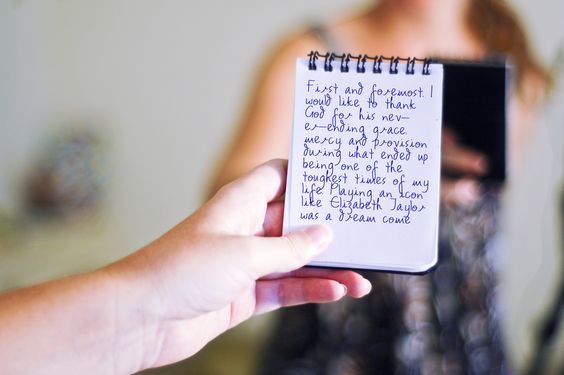 First and foremost. I
would like to thank
God for his nev-
er-ending grace
mercy and provision
during what ended up
being one of the
toughest times of my
life. Playing an icon
like Elizabeth Taylor
was a dream come